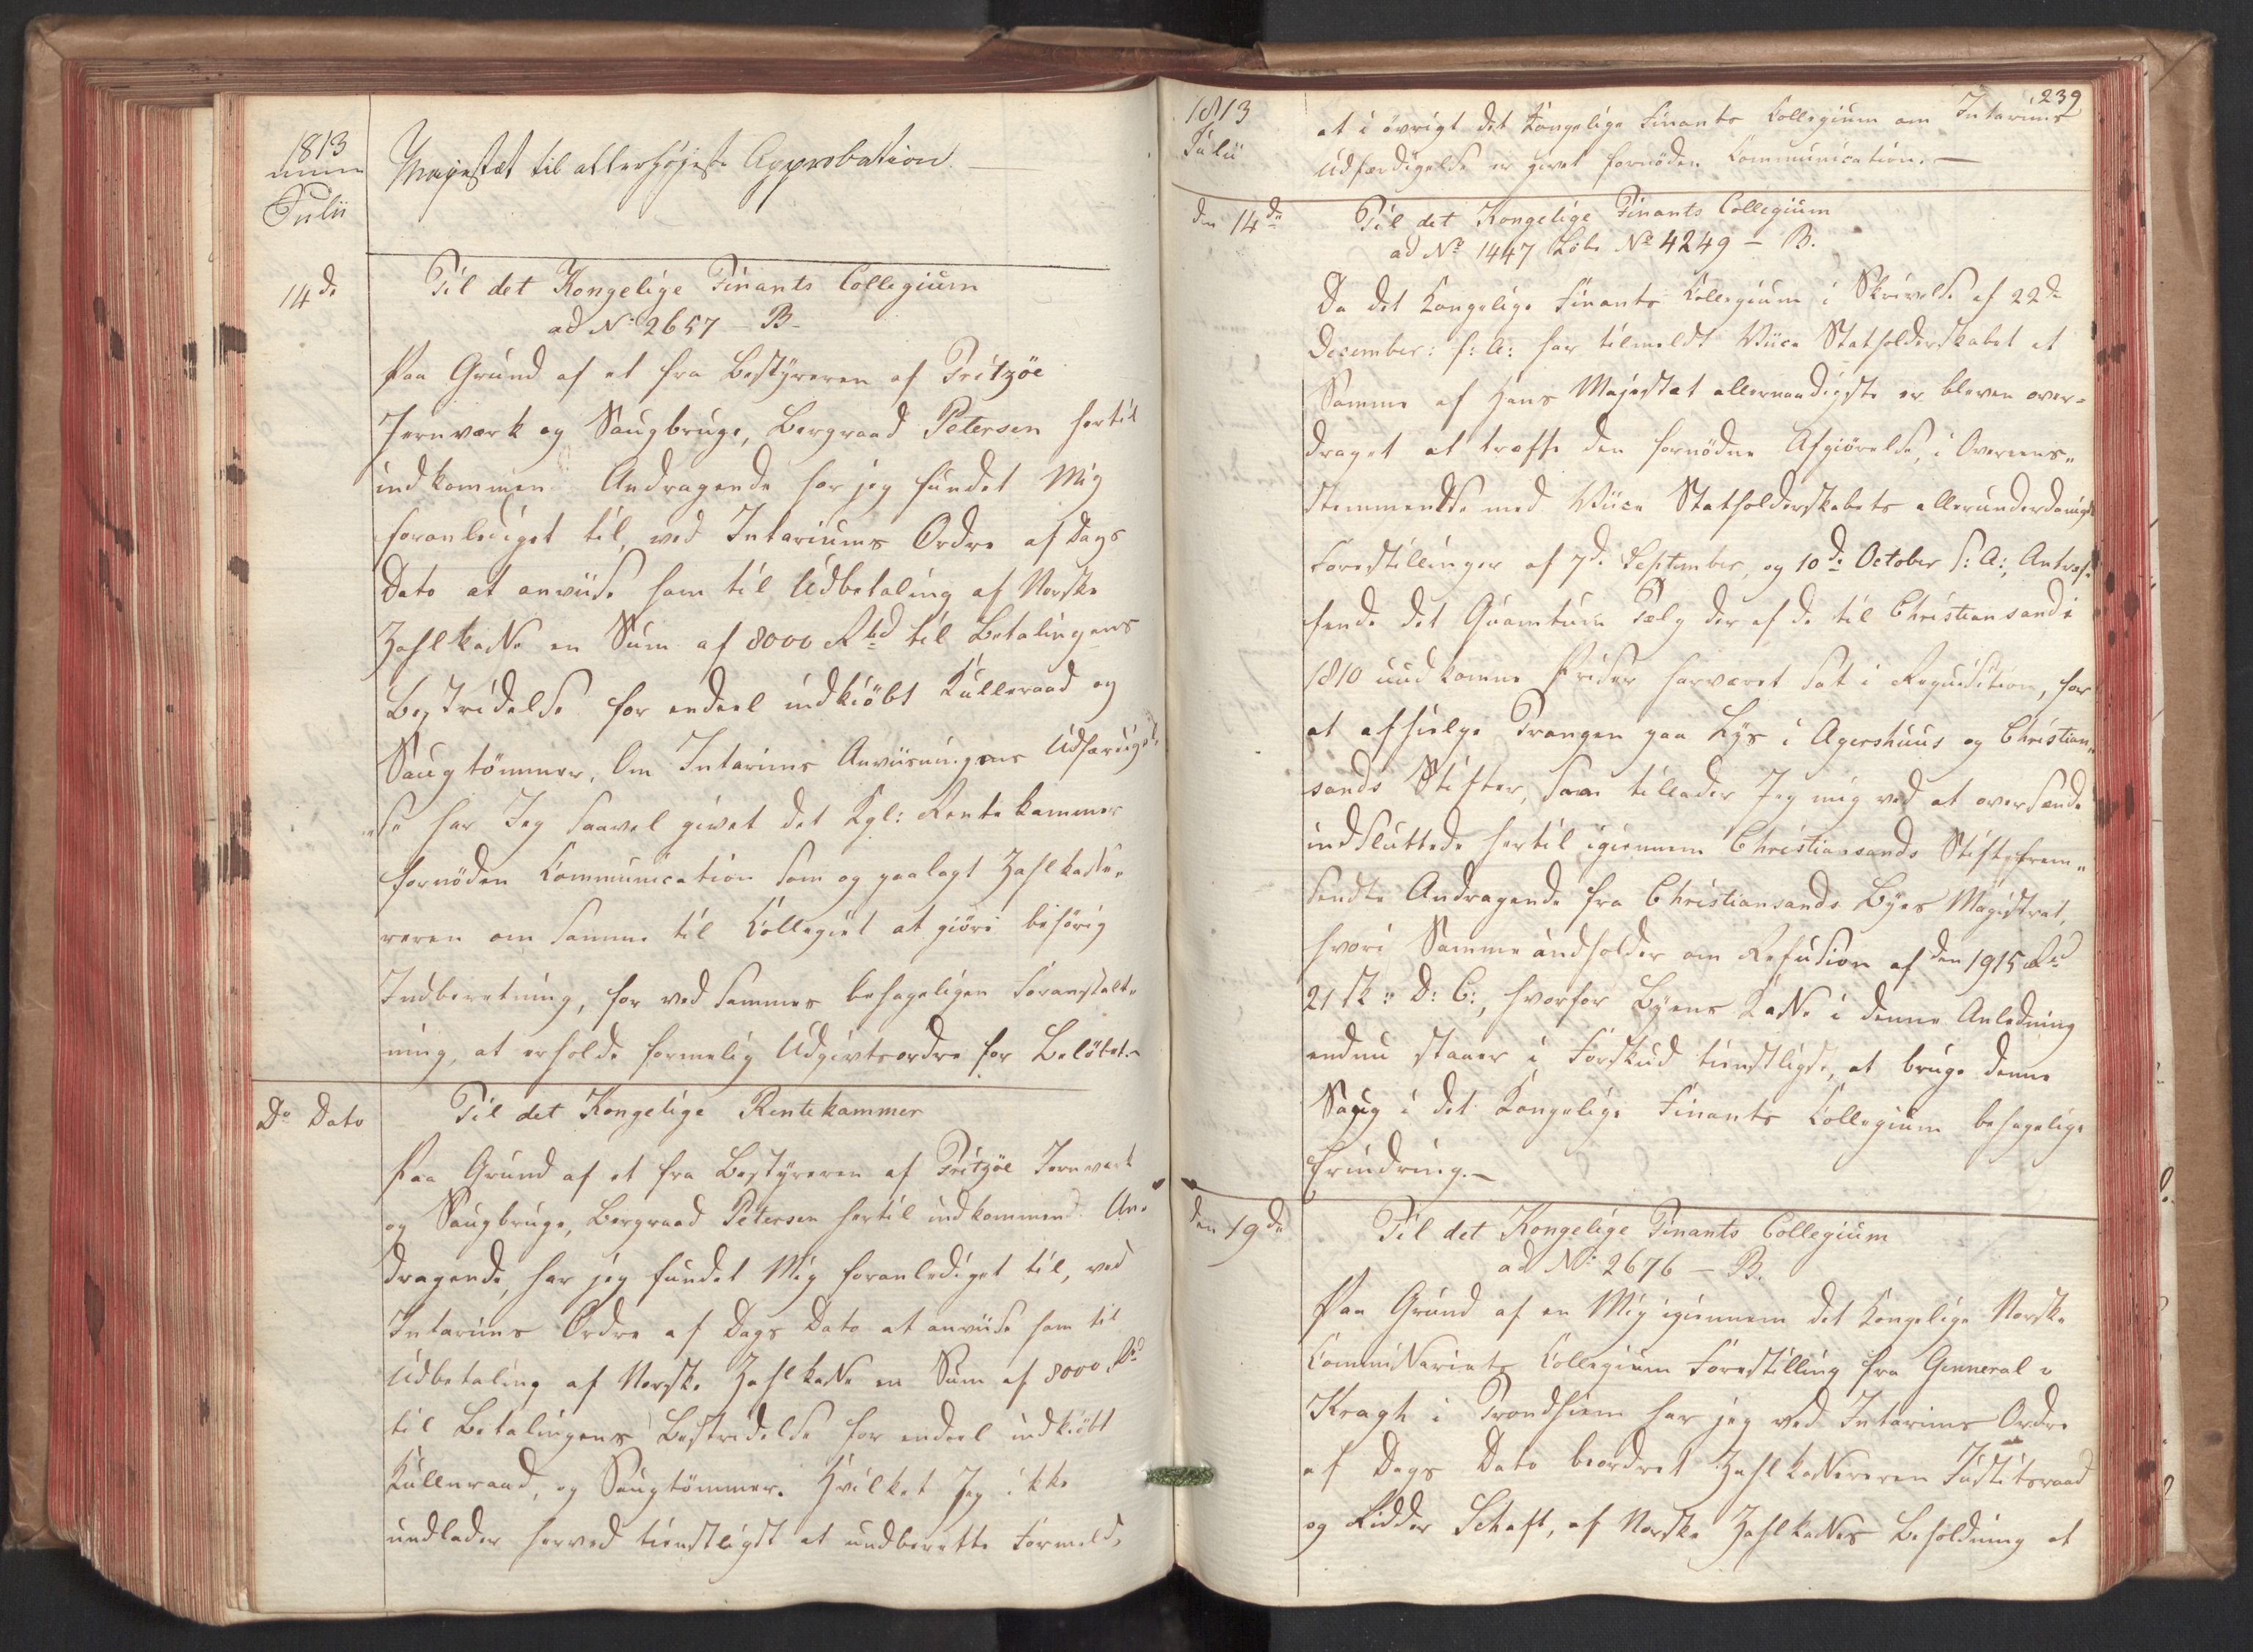 1813
Julii
Majestæt til allerhøjeste Approbation. —
14de
Til det Kongelige Finants Collegium
ad No 2657 — B.
Paa Grund af et fra Bestyreren af Fritzöe
Jernværk og Saugbruge, Bergraad Petersen hertil
indkommen Andragende har jeg fundet Mig
foranlediget til, ved Interims Ordre af Dags
Dato at anviise ham til Udbetaling af Norske
Zahlkasse en Sum af 8000 Rbd til Betalingens
Bestridelse for endeel indkiöbt Kulleraad og
Saugtömmer. Om Interims Anviisningens Udfærdigel„
„se har Jeg saavel givet det Kgl: Rentekammer
fornöden Communication som og paalagt Zahlkasse„
reren om samme til Collegiet at giöre behörig
Indberetning, for ved sammes behageligen Foranstalt„
ning, at erholde formelig Udgivtsordre for Belöbet.
Do Dato
Til det Kongelige Rentekammer
Paa Grund af et fra Bestyreren af Fritzöe Jernværk
og Saugbruge, Bergraad Petersen hertil indkommend An„
dragende, har jeg fundet Mig foranlediget til, ved
Interims Ordre af Dags Dato at anviise ham til
Udbetaling af Norske Zahlkasse en Sum af 8000 Rd
til Betalingens Bestridelse for endeel indkiöbt
Kulleraad, og Saugtömmer. Hvilket Jeg ikke
undlader herved tienstligst at underrette Formeld„
239
1813
Julii
at i övrigt det Kongelige Finants Collegium om Interims
Udfærdigelse er givet fornöden Communication. —
den 14de
Til det Kongelige Finants Collegium
ad No 1447 Löbe No 4249 — B.
Da det Kongelige Finants Collegium i Skrivelse af 22de
December: f: A: har tilmeldt Viice Statholderskabet at
Samme af Hans Majestæt allernaadigst er bleven over„
draget at træffe den fornödne Afgiörelse, i Overeens„
stemmelse med Viice Statholderskabets allerunderdanigste
Forestillinger af 7de September, og 10de October f: A:, Antræf„
fende det Quantum Tælg der af de til Christiansand i
1810 indkomne Priser har været sat i Requisition, for
at afhielpe Trangen paa Lys i Agershuus og Christian„
sands Stifter, saa tillader Jeg mig ved at oversende
indsluttede hertil igiennem Christiansands Stift frem„
sendte Andragende fra Christiansands Byes Magistrat,
hvori Samme andholder om Refusion af den 1915 Rd
21 sk: D: C:, hvorfor Byens Kasse i denne Anledning
endnu staaer i Forskud tienstligst, at bringe denne
Saug i det Kongelige Finants Collegium behagelige
Erindring. —
den 19de
Til det Kongelige Finants Collegium
ad No 2676 — B.
Paa Grund af en Mig igiennem det Kongelige Norske
Commissariats Collegium Forestilling fra Genneral v
Kragh i Trondhiem har jeg ved Interims Ordre
af Dags Dato beordret Zahlkasseren Justitsraad
og Ridder Schaft, af Norske Zahlkasses Beholdning at